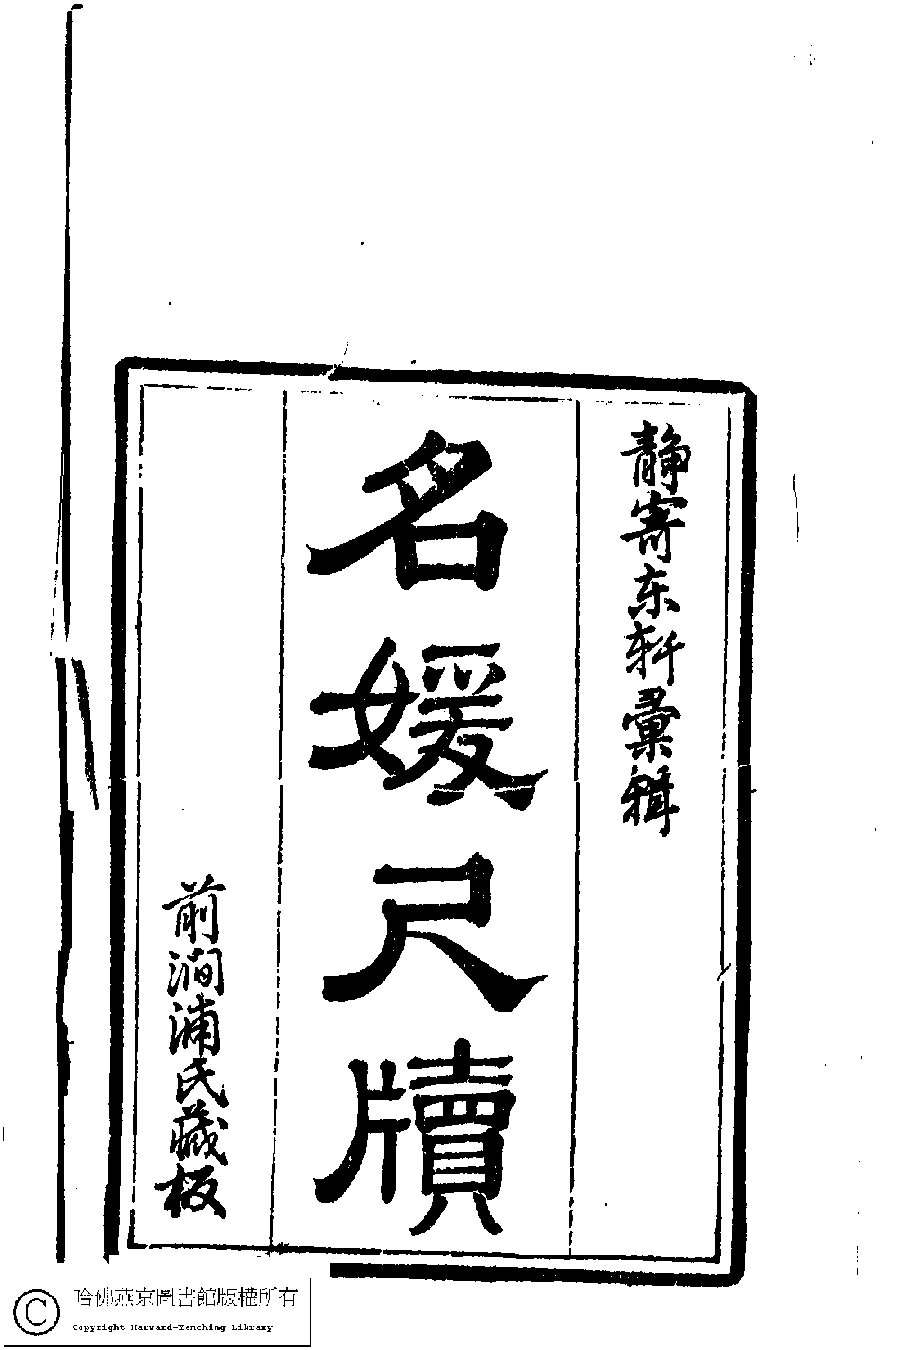 靜寄东軒彙輯
名媛尺牘
前澗浦氏藏板
哈佛燕京圖書館版權所有
Copyright Harvard-Yenching Library